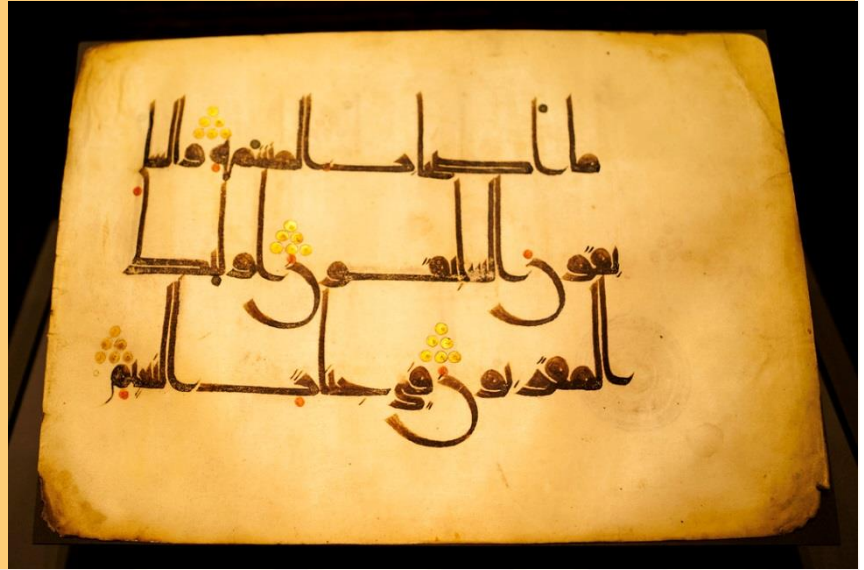 ما اصحاب المشمه والسا
بقون السبقون اوليك
المقربون في جنات النعيم